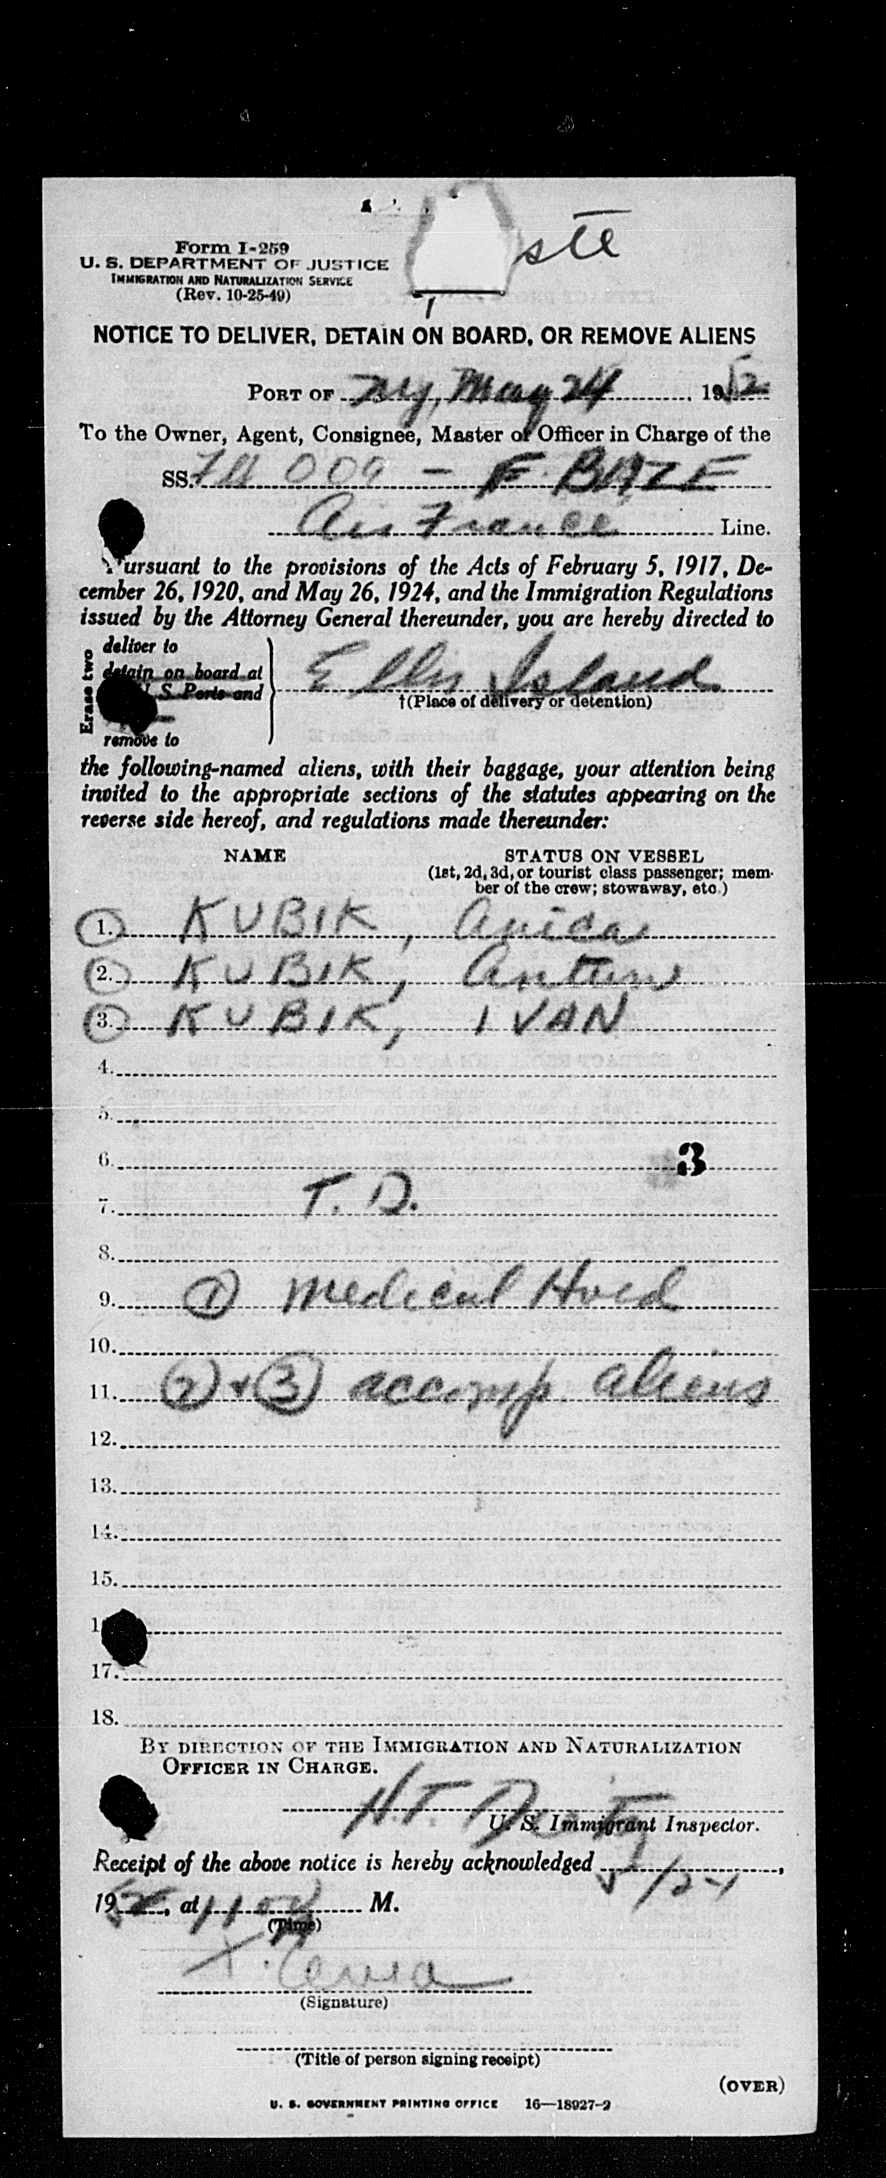 ste
Form I-259
U. S. DEPARTMENT OF JUSTICE
IMMIGRATION AND NATURALIZATION SERVICE
(Rev. 10-25-49)
NOTICE TO DELIVER, DETAIN ON BOARD, OR REMOVE ALIENS
PORT OF NY, May 24, 1952
To the Owner, Agent, Consignee, Master or Officer in Charge of the
SS. 009 - F. BAZE
Air France Line.
Pursuant to the provisions of the Acts of February 5, 1917, De-
cember 26, 1920, and May 26, 1924, and the Immigration Regulations
issued by the Attorney General thereunder, you are hereby directed to
Erase two
deliver to
detain on board at
U. S. Ports and
remove to
Ellis Island
†(Place of delivery or detention)
the following-named aliens, with their baggage, your attention being
invited to the appropriate sections of the statutes appearing on the
reverse side hereof, and regulations made thereunder:
NAME STATUS ON VESSEL
(1st, 2d, 3d, or tourist class passenger; mem-
ber of the crew; stowaway, etc.)
1. KUBIK, Anica
2. KUBIK, Antun
3. KUBIK, IVAN
4.
5.
6. 3
7. T. D.
8.
9. ① Medical Hold
10.
11. ② + ③ accomp. aliens
12.
13.
14.
15.
17.
18.
BY DIRECTION OF THE IMMIGRATION AND NATURALIZATION
OFFICER IN CHARGE.
H.T.
U. S. Immigrant Inspector.
Receipt of the above notice is hereby acknowledged 5/24,
1952, at M.
(Time)
(Signature)
(Title of person signing receipt)
(OVER)
U. S. GOVERNMENT PRINTING OFFICE 16—18927-2